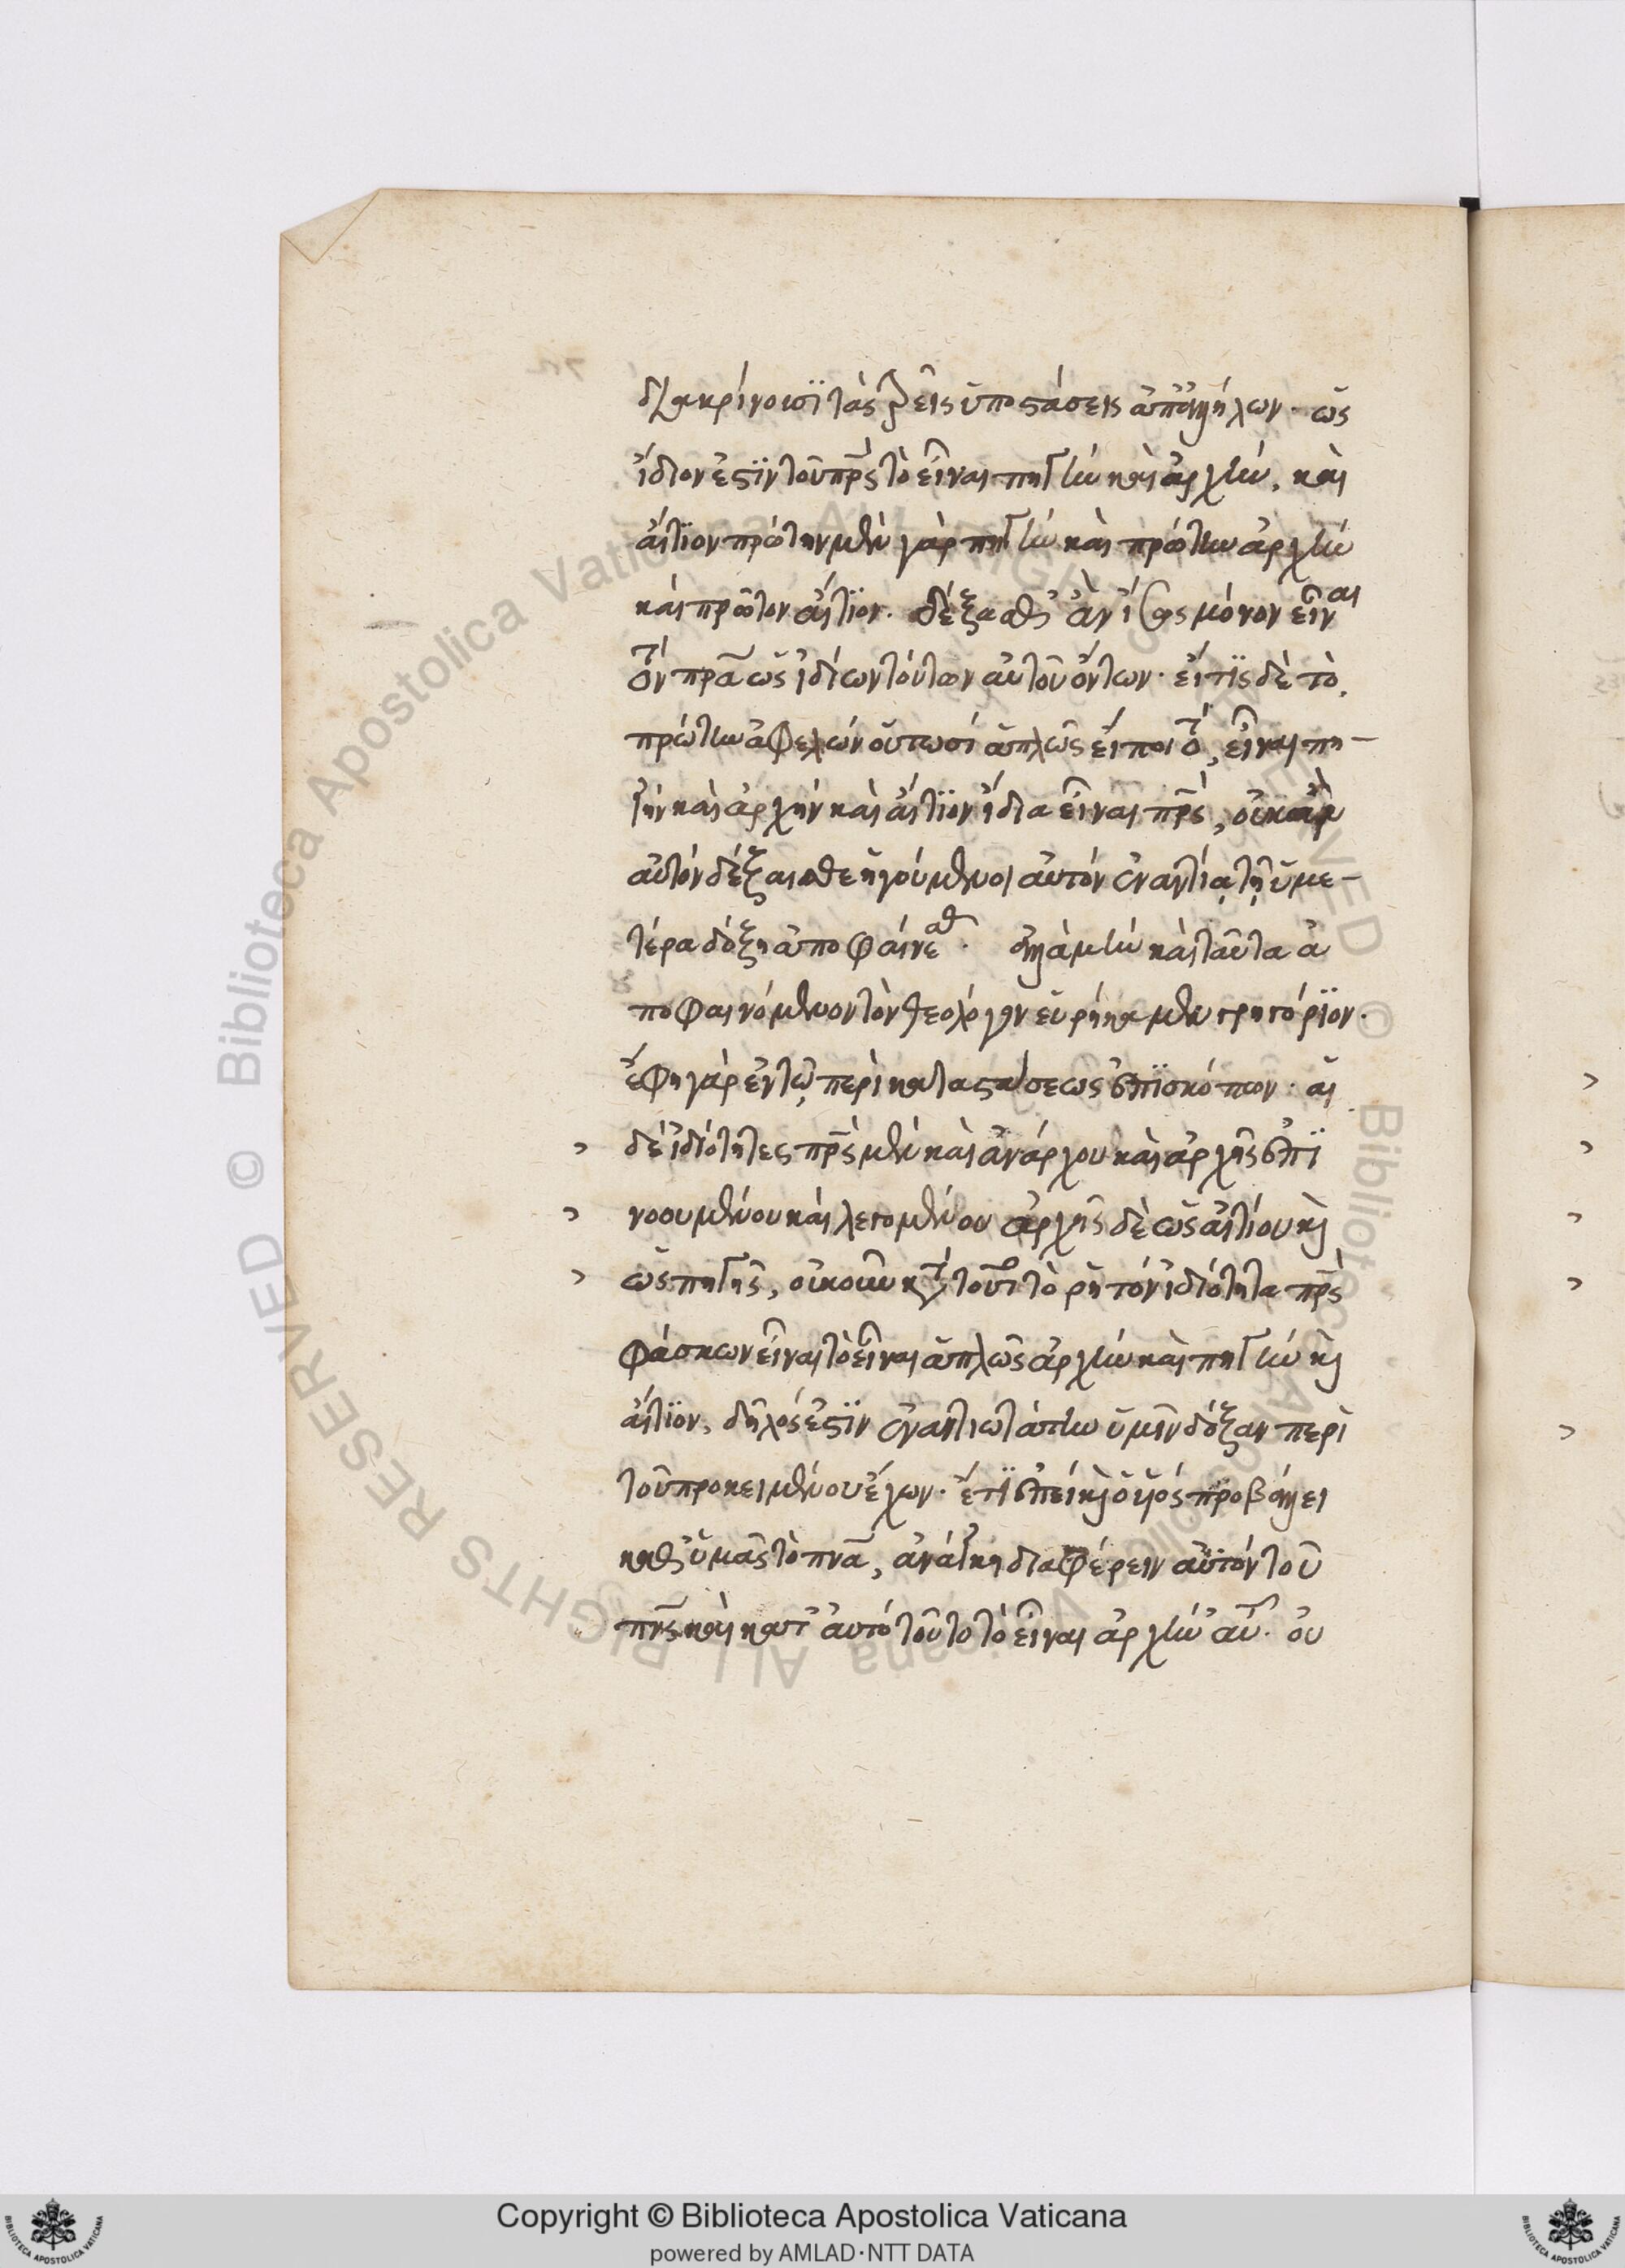 διακρίνουσι τὰς τρεῖς ὑποστάσεις ἀπ' ἀλλήλων· ὡς
ἴδιον ἐστὶν τοῦ πρς τὸ εἶναι πηγὴν καὶ ἀρχὴν, καὶ
αἴτιον πρώτην μὲν γὰρ πηγὴν καὶ πρώτην ἀρχὴν
καὶ πρῶτον αἴτιον. δέξασθ' ἂν ἴσως μόνον εἶναι
τὸν πρα ὡς ἰδίων τούτων αὐτοῦ ὄντων· εἴ τις δὲ τὸ
πρώτην ἀφελὼν οὕτωσὶ ἁπλῶς εἴποι τὸ, εἶναι πη-
γὴν καὶ ἀρχὴν καὶ αἴτιον ἴδια εἶναι πρς, οὐκ ἂν
αὐτὸν δέξαισθε ἡγούμενοι αὐτὸν ἐναντία τῇ ὑμε-
τέρα δόξη ἀποφαίνεσθ. ἀλλὰ μὴν καὶ ταῦτα ἀ
ποφαινόμενον τὸν θεολόγον εὑρήκαμεν γρηγόριον.
ἔφη γὰρ ἐν τῷ περὶ καταστάσεως ἐπισκόπων· αἱ
δὲ ἰδιότητες πρς μὲν καὶ ἀνάρχου καὶ ἀρχῆς ἐπι
νοουμένου καὶ λεγομένου ἀρχῆς δὲ ὡς αἰτίου κ
ὡς πηγῆς, οὐκοῦν κατὰ τοῦτο τὸ ῥητὸν ἰδιότητα πρς
φάσκων εἶναι τὸ εἶναι ἁπλῶς ἀρχὴν καὶ πηγὴν κ
αἴτιον, δῆλος ἐστὶν ἐναντιωτάτην ὑμῖν δόξαν περὶ
τοῦ προκειμένου ἔχων. ἔτι ἐπεὶ κ ὁ υἱὸς προβάλλει
καθ' ὑμᾶς τὸ πνα, ἀνάγκη διαφέρειν αὐτὸν τοῦ
πνς καὶ κατ' αὐτὸ τοῦτο τὸ εἶναι ἀρχὴν αὐτ. οὐ
Copyright © Biblioteca Apostolica Vaticana
powered by AMLAD·NTT DATA